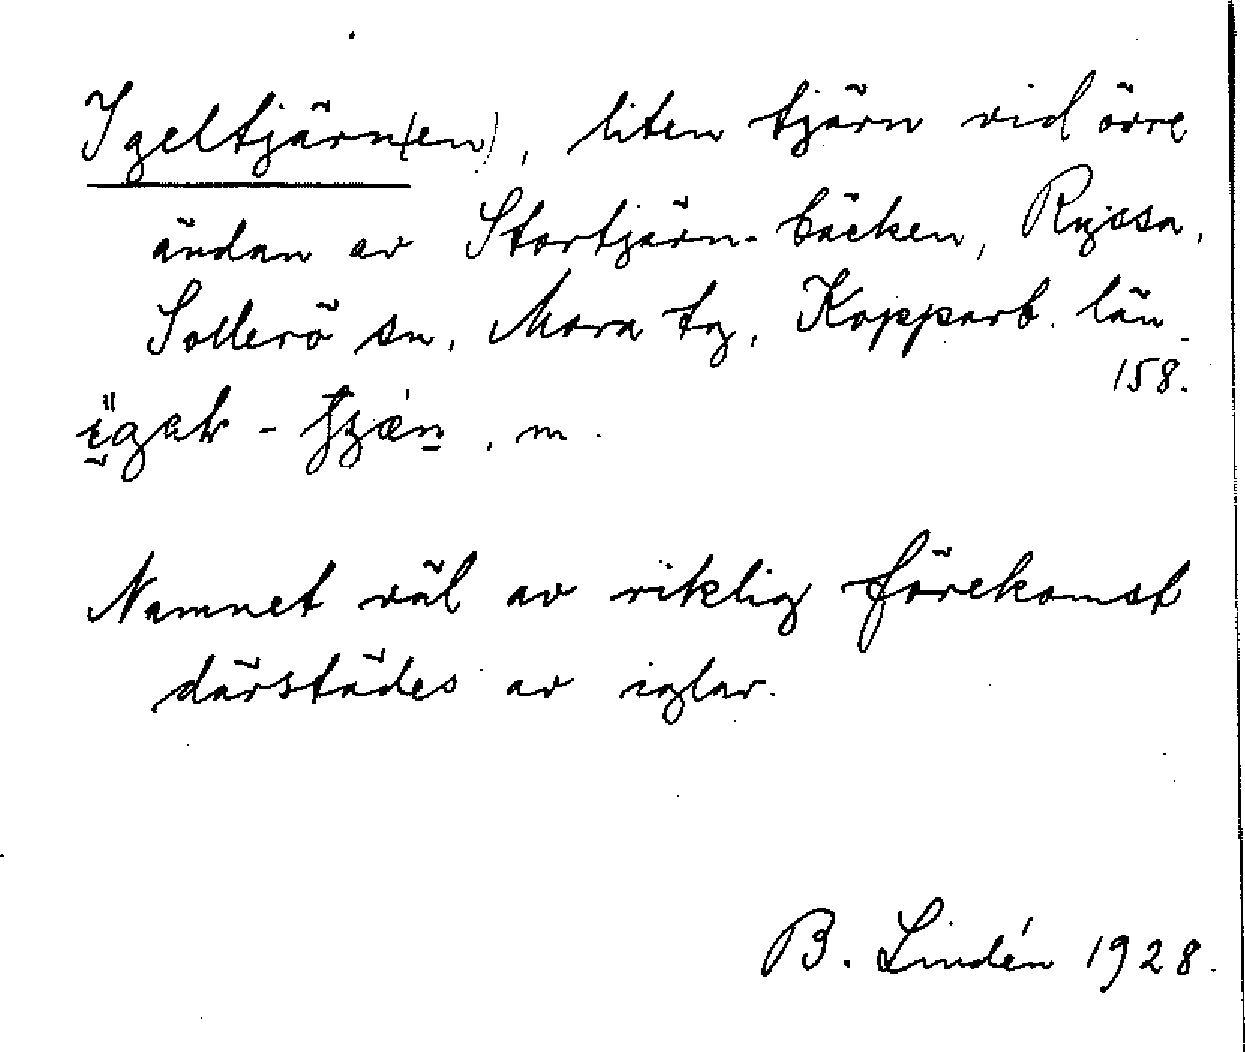 Igeltjärn(en), liten tjärn vid övre
ändan av Stortjärn-bäcken, Ryssa,
Sollerö sn, Mora tg, Kopparb. län.
158.
, m.
Namnet väl av riklig förekomst
därstädes av iglar.
B. Lindén 1928.